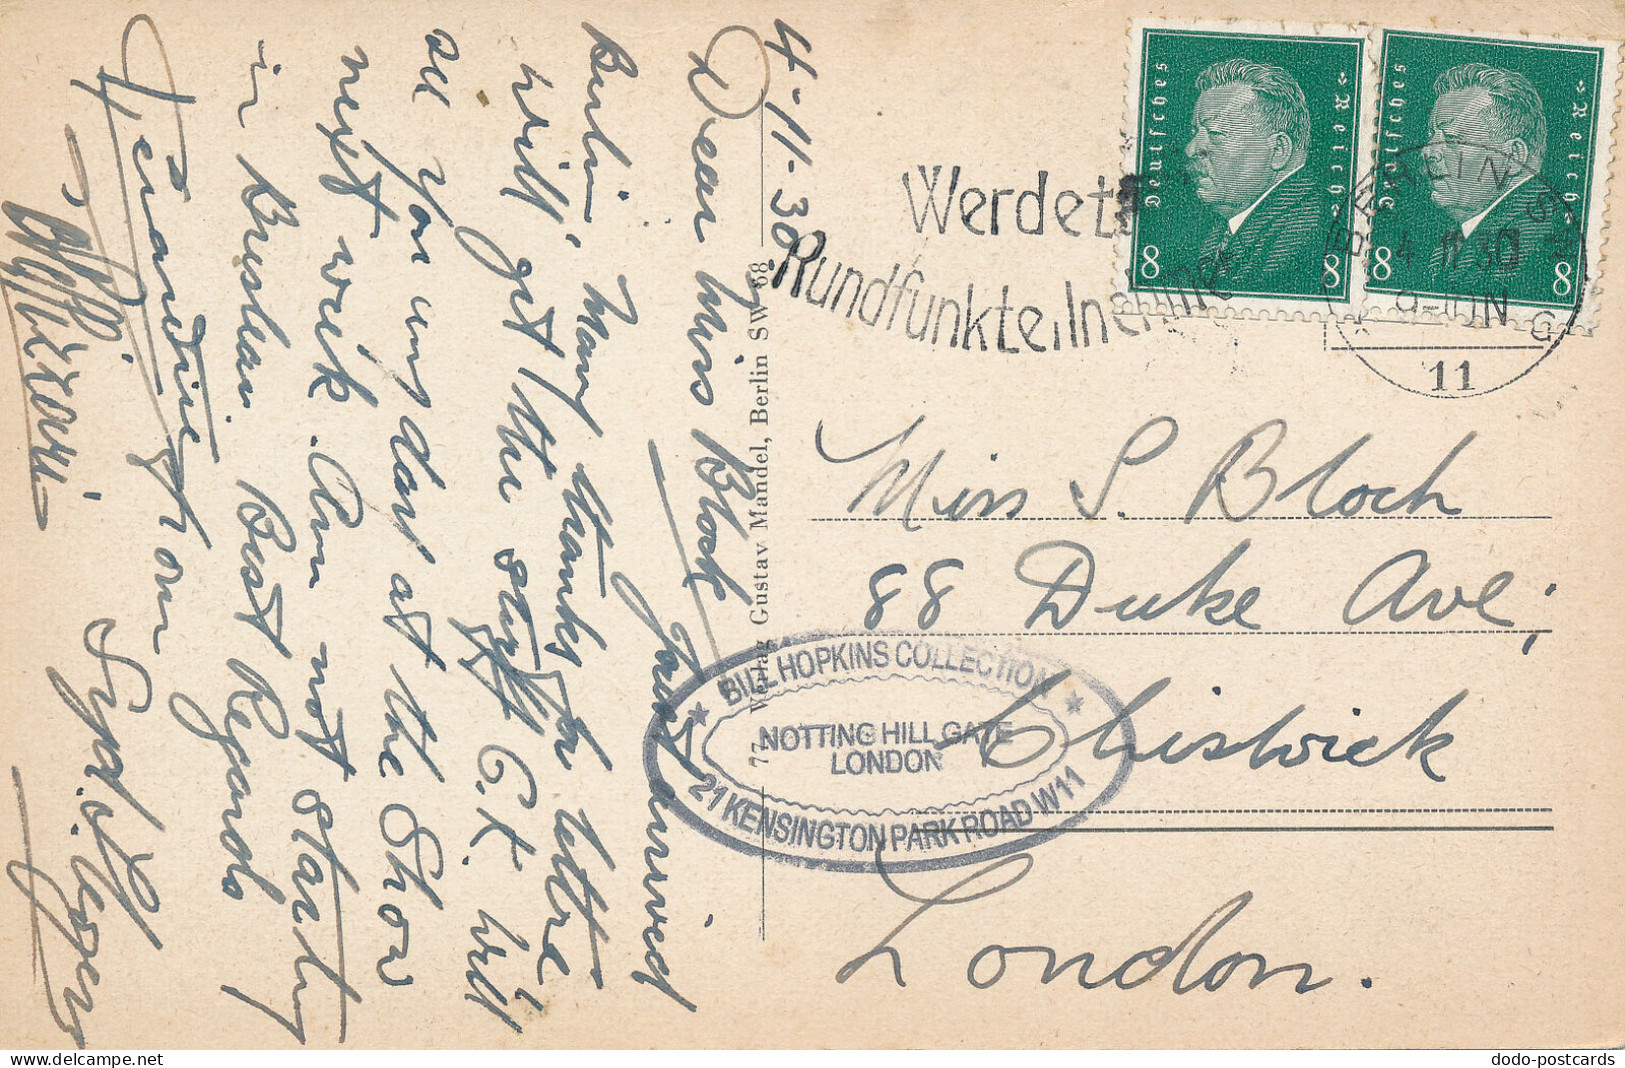 4-11-30
Dear Miss Bloch
Just arrived
Berlin, Many thanks for lettre
will get the stuff G.K. will
see you one day at the Show
next week. Am not starting
in Breslau. Best Regards
from Syd. S.
Verlag Gustav Mandel, Berlin SW 68
77
Werdet
Rundfunkteilnehmer
Deutsches Reich
8 8
Deutsches Reich
8 8
BERLIN SW
4 11 30
9-10 N
11
Miss S. Bloch
88 Duke Ave,
Chiswick
London.
BILL HOPKINS COLLECTION
NOTTING HILL GATE
LONDON
21 KENSINGTON PARK ROAD W11
delcampe.net
dodo-postcards